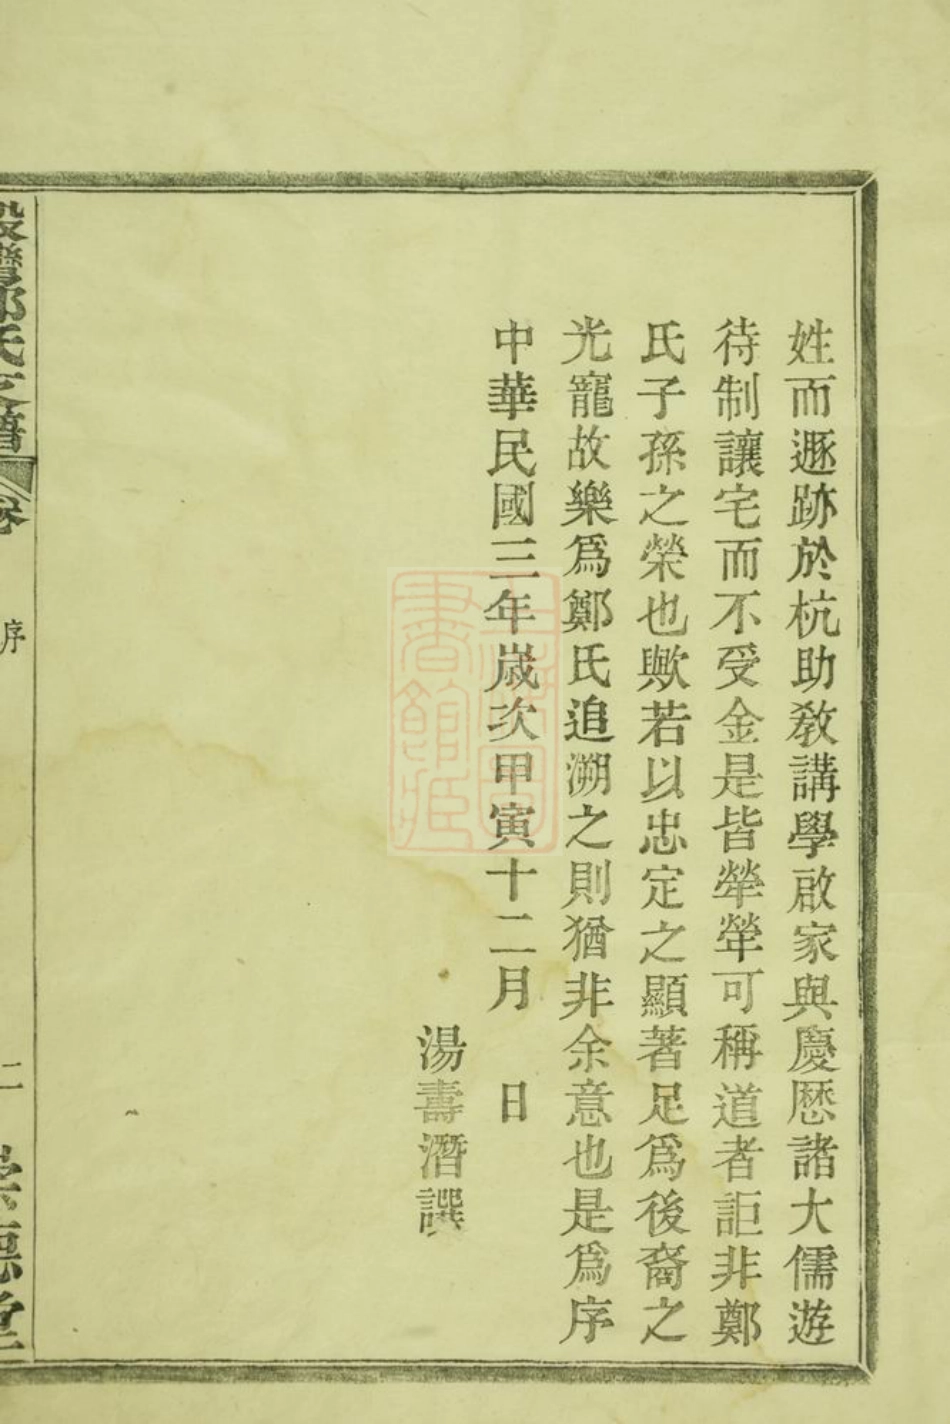 姓而遯跡於杭助教講學啟家與慶厯諸大儒遊
待制讓宅而不受金是皆犖犖可稱道者詎非鄭
氏子孫之榮也歟若以忠定之顯著足爲後裔之
光寵故樂爲鄭氏追溯之則猶非余意也是爲序
中華民國三年歲次甲寅十二月 日
湯壽潛譔
鄭氏支譜
卷
序
二
崇德堂